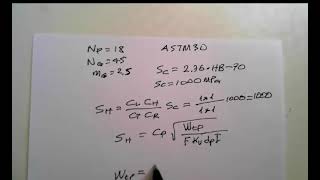 Np = 18 ASTM 30
NG = 45
mG = 2,5 Sc = 2.36·HB-70
Sc = 1000 MPa
SH = CL CH / CT CR Sc = 1x1 / 1x1 1000 = 1000
SH = Cp √ Wtp / F Kv dp I
Wtp =